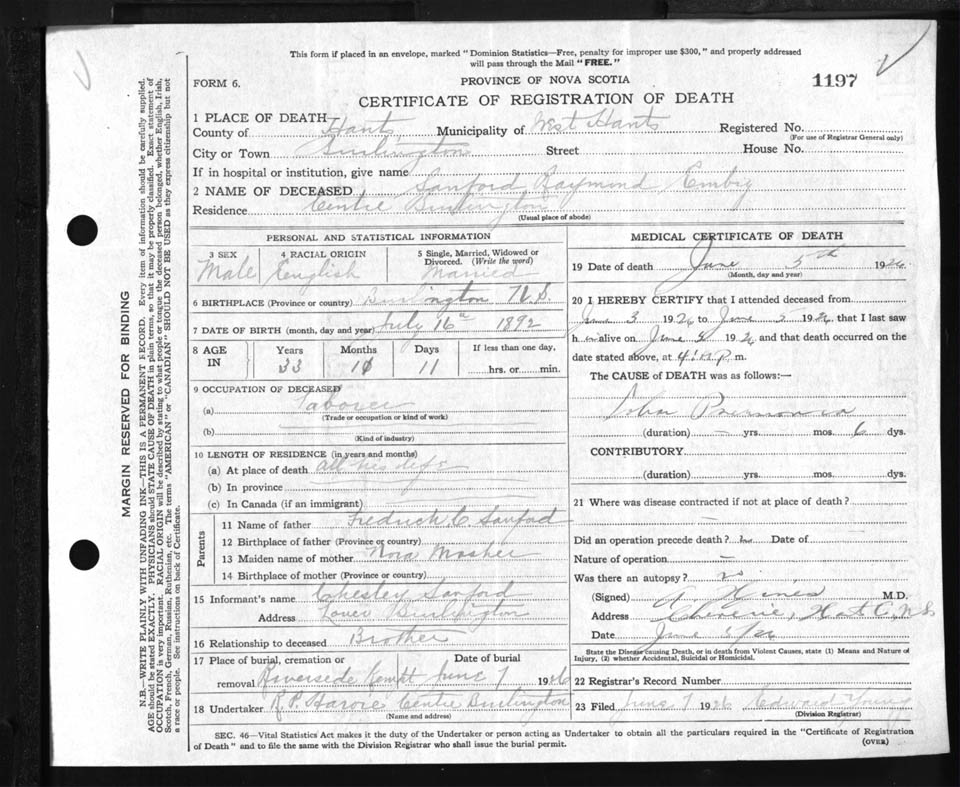 This form if placed in an envelope, marked "Dominion Statistics—Free, penalty for improper use $300," and properly addressed
will pass through the Mail "FREE."
FORM 6.
PROVINCE OF NOVA SCOTIA
1197
CERTIFICATE OF REGISTRATION OF DEATH
1 PLACE OF DEATH
County of Hants Municipality of West Hants Registered No.
(For use of Registrar General only)
City or Town Burlington Street House No.
If in hospital or institution, give name
2 NAME OF DECEASED Sanford, Raymond
Residence Centre Burlington
(Usual place of abode)
PERSONAL AND STATISTICAL INFORMATION
3 SEX 4 RACIAL ORIGIN 5 Single, Married, Widowed or
Divorced. (Write the word)
Male English Married
6 BIRTHPLACE (Province or country) Burlington N.S.
7 DATE OF BIRTH (month, day and year) July 16th 1892
8 AGE IN Years Months Days If less than one day,
33 10 11 hrs. or min.
9 OCCUPATION OF DECEASED
(a) Laborer
(Trade or occupation or kind of work)
(b)
(Kind of industry)
10 LENGTH OF RESIDENCE (in years and months)
(a) At place of death all his life
(b) In province
(c) In Canada (if an immigrant)
Parents
11 Name of father Fredrick C Sanford
12 Birthplace of father (Province or country)
13 Maiden name of mother Nora Mosher
14 Birthplace of mother (Province or country)
15 Informant's name Chesley Sanford
Address Lower Burlington
16 Relationship to deceased Brother
17 Place of burial, cremation or Date of burial
removal Riverside June 7 1926
18 Undertaker R.P. Harvie Centre Burlington
(Name and address)
MEDICAL CERTIFICATE OF DEATH
19 Date of death June 5th 1926
(Month, day and year)
20 I HEREBY CERTIFY that I attended deceased from
June 3 1926 to June 5 1926 that I last saw
him alive on June 5 1926 and that death occurred on the
date stated above, at 4 P. m.
The CAUSE of DEATH was as follows:—
Lobar Pneumonia
(duration) — yrs. mos. 6 dys.
CONTRIBUTORY
(duration) yrs. mos. dys.
21 Where was disease contracted if not at place of death?
—
Did an operation precede death? no Date of
Nature of operation —
Was there an autopsy? no
(Signed) A. Hines M.D.
Address Cheverie, N.S.
Date June 5/26
State the Disease causing Death, or in death from Violent Causes, state (1) Means and Nature of
Injury, (2) whether Accidental, Suicidal or Homicidal.
22 Registrar's Record Number
23 Filed June 7 1926 Edward Young
(Division Registrar)
SEC. 46—Vital Statistics Act makes it the duty of the Undertaker or person acting as Undertaker to obtain all the particulars required in the "Certificate of Registration
of Death" and to file the same with the Division Registrar who shall issue the burial permit.
(OVER)
MARGIN RESERVED FOR BINDING
N.B.—WRITE PLAINLY WITH UNFADING INK—THIS IS A PERMANENT RECORD. Every item of information should be carefully supplied.
AGE should be stated EXACTLY. PHYSICIANS should STATE CAUSE OF DEATH in plain terms, so that it may be properly classified. Exact statement of
OCCUPATION is very important. RACIAL ORIGIN will be described by stating to what people or tongue the deceased person belonged, whether English, Irish,
Scotch, French, German, Russian, Ruthenian, etc. The terms "AMERICAN" or "CANADIAN" SHOULD NOT BE USED as they express citizenship but not
a race or people. See instructions on back of Certificate.